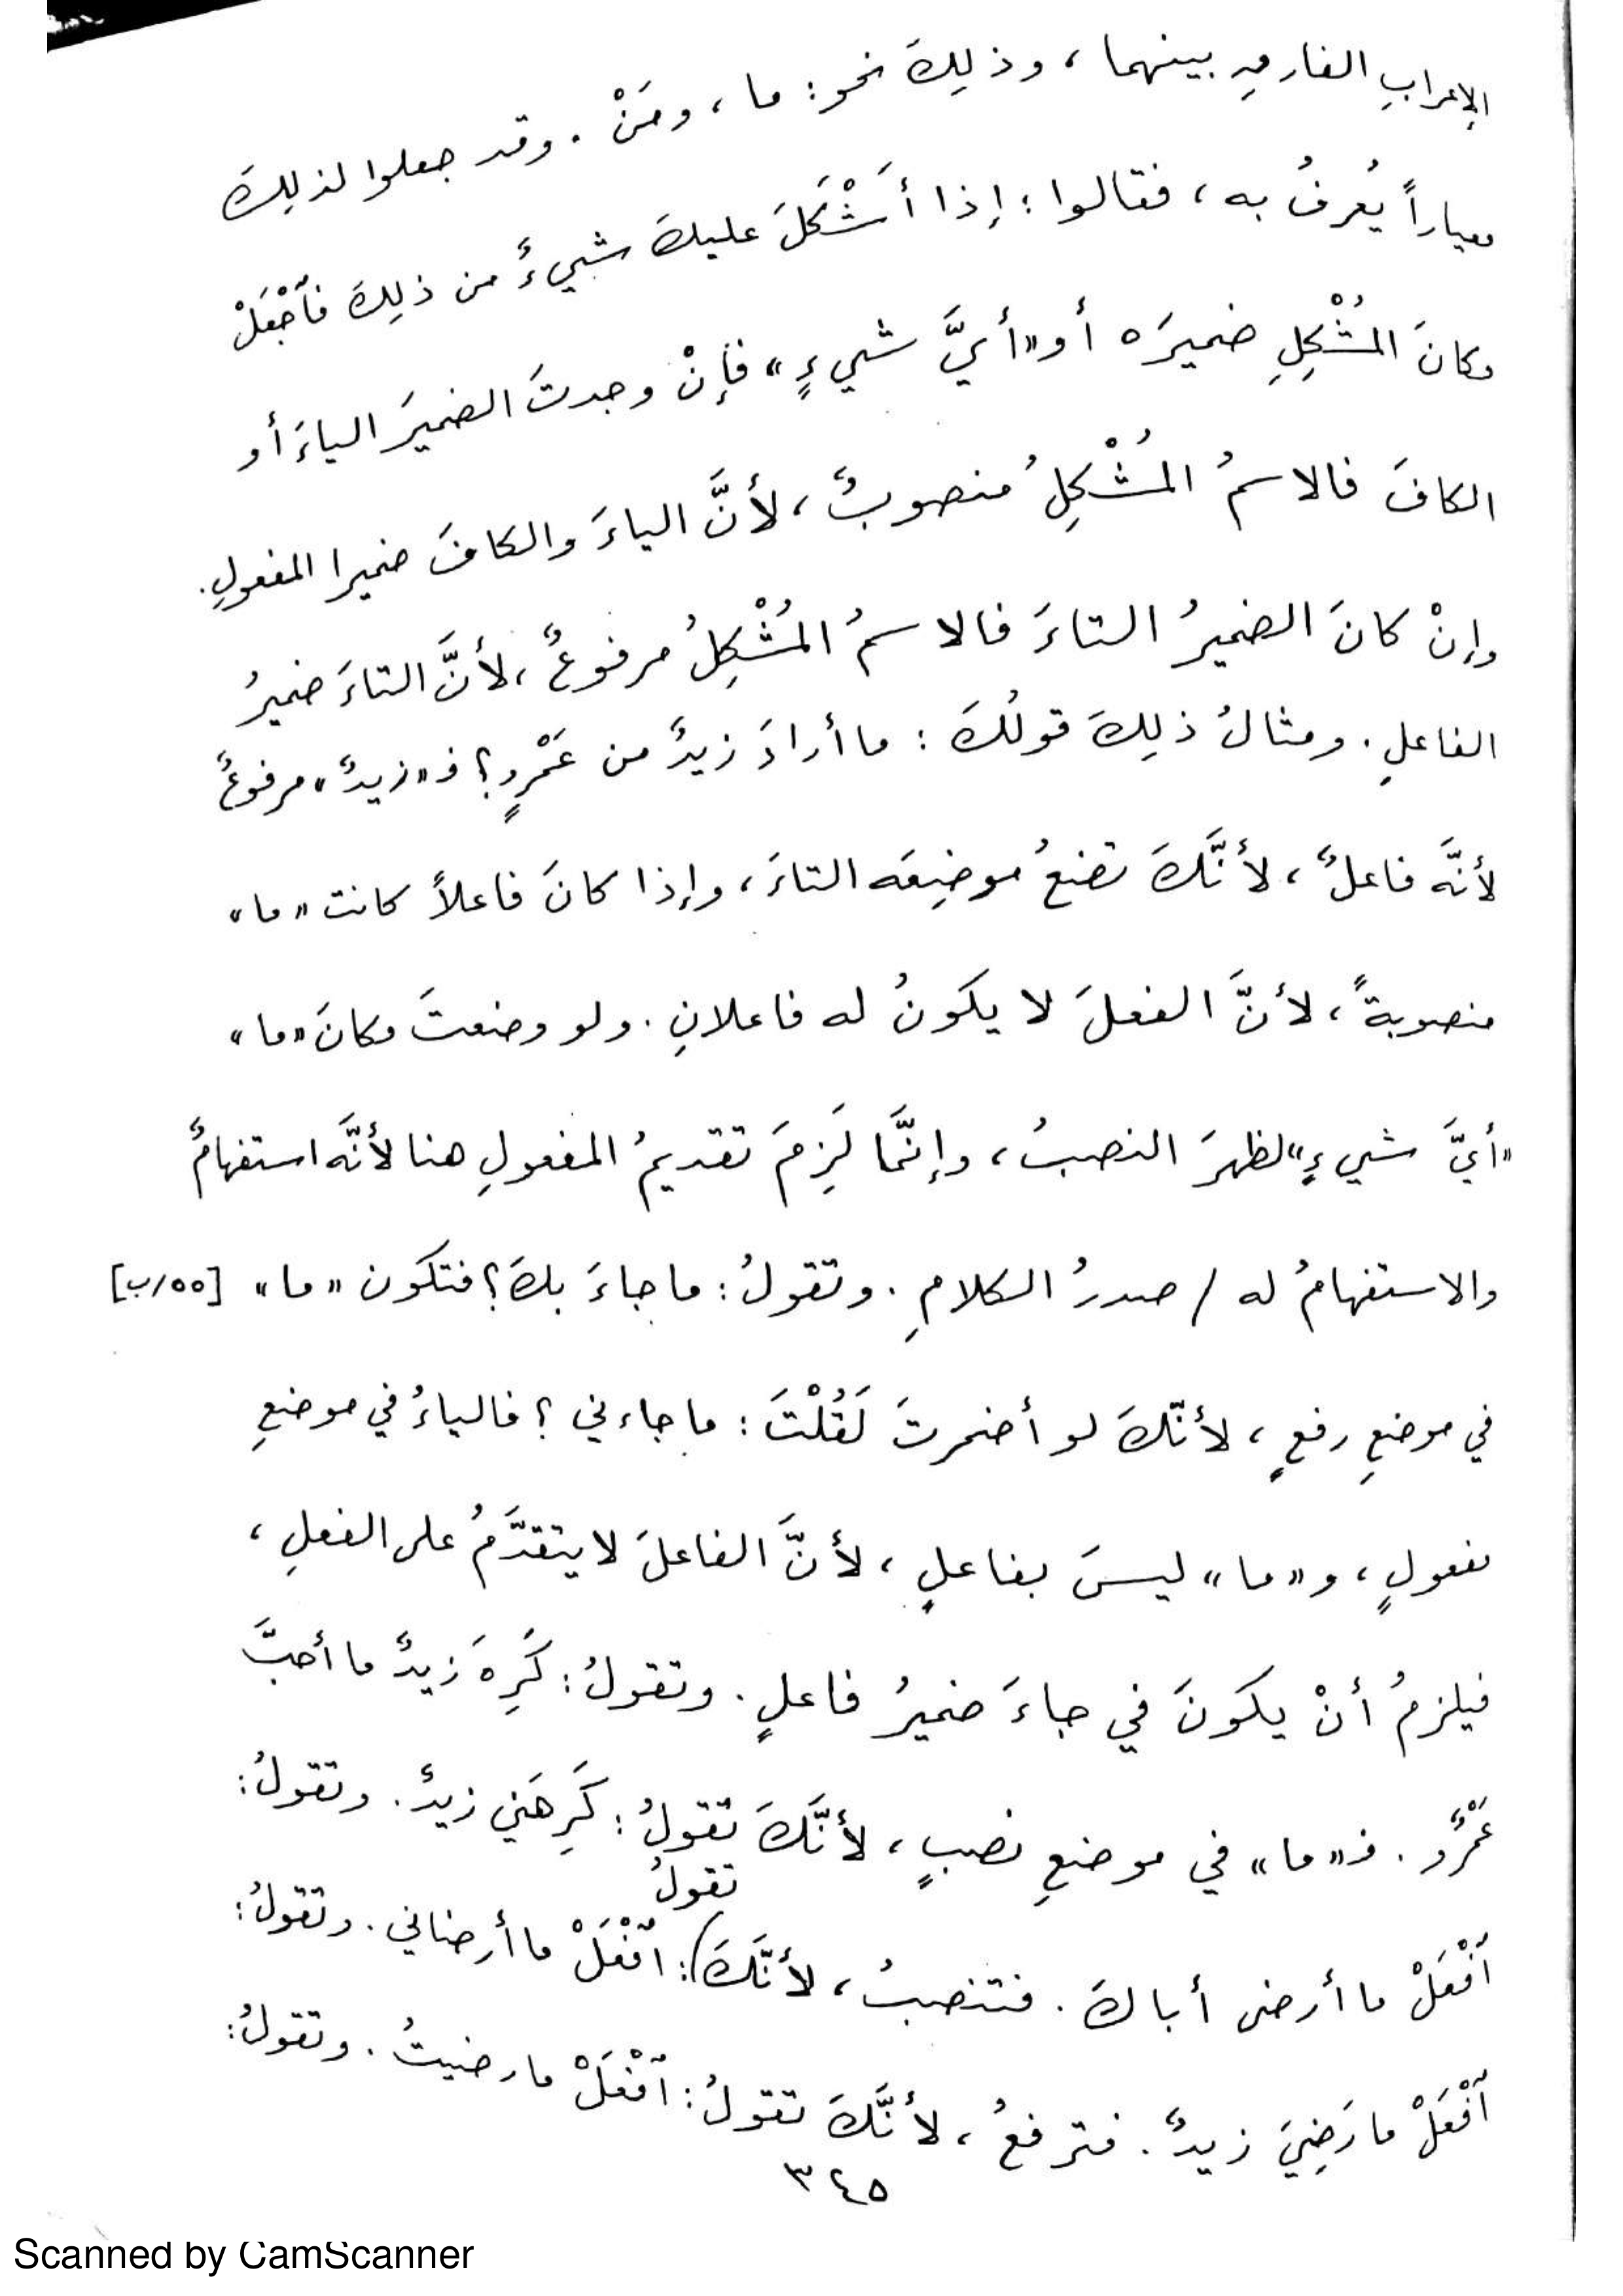 الإعرابِ الفارقِ بينهما ، وذلِكَ نحو : ما ، ومَنْ . وقد جعلوا لذلِكَ
معياراً يُعرفُ به ، فقالوا : إذا أَشْكَلَ عليكَ شيءٌ من ذلِكَ فٱجْعَلْ
مكانَ المُشْكِلِ ضميرَه أو «أيَّ شيءٍ» فإنْ وجدتَ الضميرَ الياءَ أو
الكافَ فالاسمُ المُشْكِلُ منصوبٌ ، لأنَّ الياءَ والكافَ ضميرا المفعولِ .
وإنْ كانَ الضميرُ التاءَ فالاسمُ المُشْكِلُ مرفوعٌ ، لأنَّ التاءَ ضميرُ
الفاعلِ . ومثالُ ذلِكَ قولُكَ : ما أرادَ زيدٌ من عَمْرٍو ؟ فـ «زيدٌ» مرفوعٌ
لأنَّه فاعلٌ ، لأنَّكَ تضعُ موضِعَه التاءَ ، وإذا كانَ فاعلاً كانت «ما»
منصوبةً ، لأنَّ الفعلَ لا يكونُ له فاعلانِ . ولو وضعتَ مكانَ «ما»
«أيَّ شيءٍ» لظهرَ النصبُ ، وإنَّما لَزِمَ تقديمُ المفعولِ هنا لأنَّه استفهامٌ
والاستفهامُ له / صدرُ الكلامِ . وتقولُ : ما جاءَ بكَ ؟ فتكون «ما» [٥٥/ب]
في موضعِ رفعٍ ، لأنّكَ لو أضمرتَ لَقُلْتَ : ما جاءني ؟ فالياءُ في موضعِ
مفعولٍ ، و «ما» ليسَ بفاعلٍ ، لأنَّ الفاعلَ لا يتقدَّمُ على الفعلِ ،
فيلزمُ أنْ يكونَ في جاءَ ضميرُ فاعلٍ . وتقولُ : كَرِهَ زيدٌ ما أحبَّ
عَمْرٌو . فـ «ما» في موضعِ نصبٍ ، لأنَّكَ تقولُ : كَرِهَني زيدٌ . وتقولُ :
تقولُ
ٱفْعَلْ ما أرضى أباكَ . فتنصبُ ، لأنَّكَ) : ٱفْعَلْ ما أرضاني . وتقولُ :
ٱفْعَلْ ما رَضِيَ زيدٌ . فترفعُ ، لأنَّكَ تقولُ : ٱفْعَلْ ما رضيتُ . وتقولُ :
٣٤٥
Scanned by CamScanner